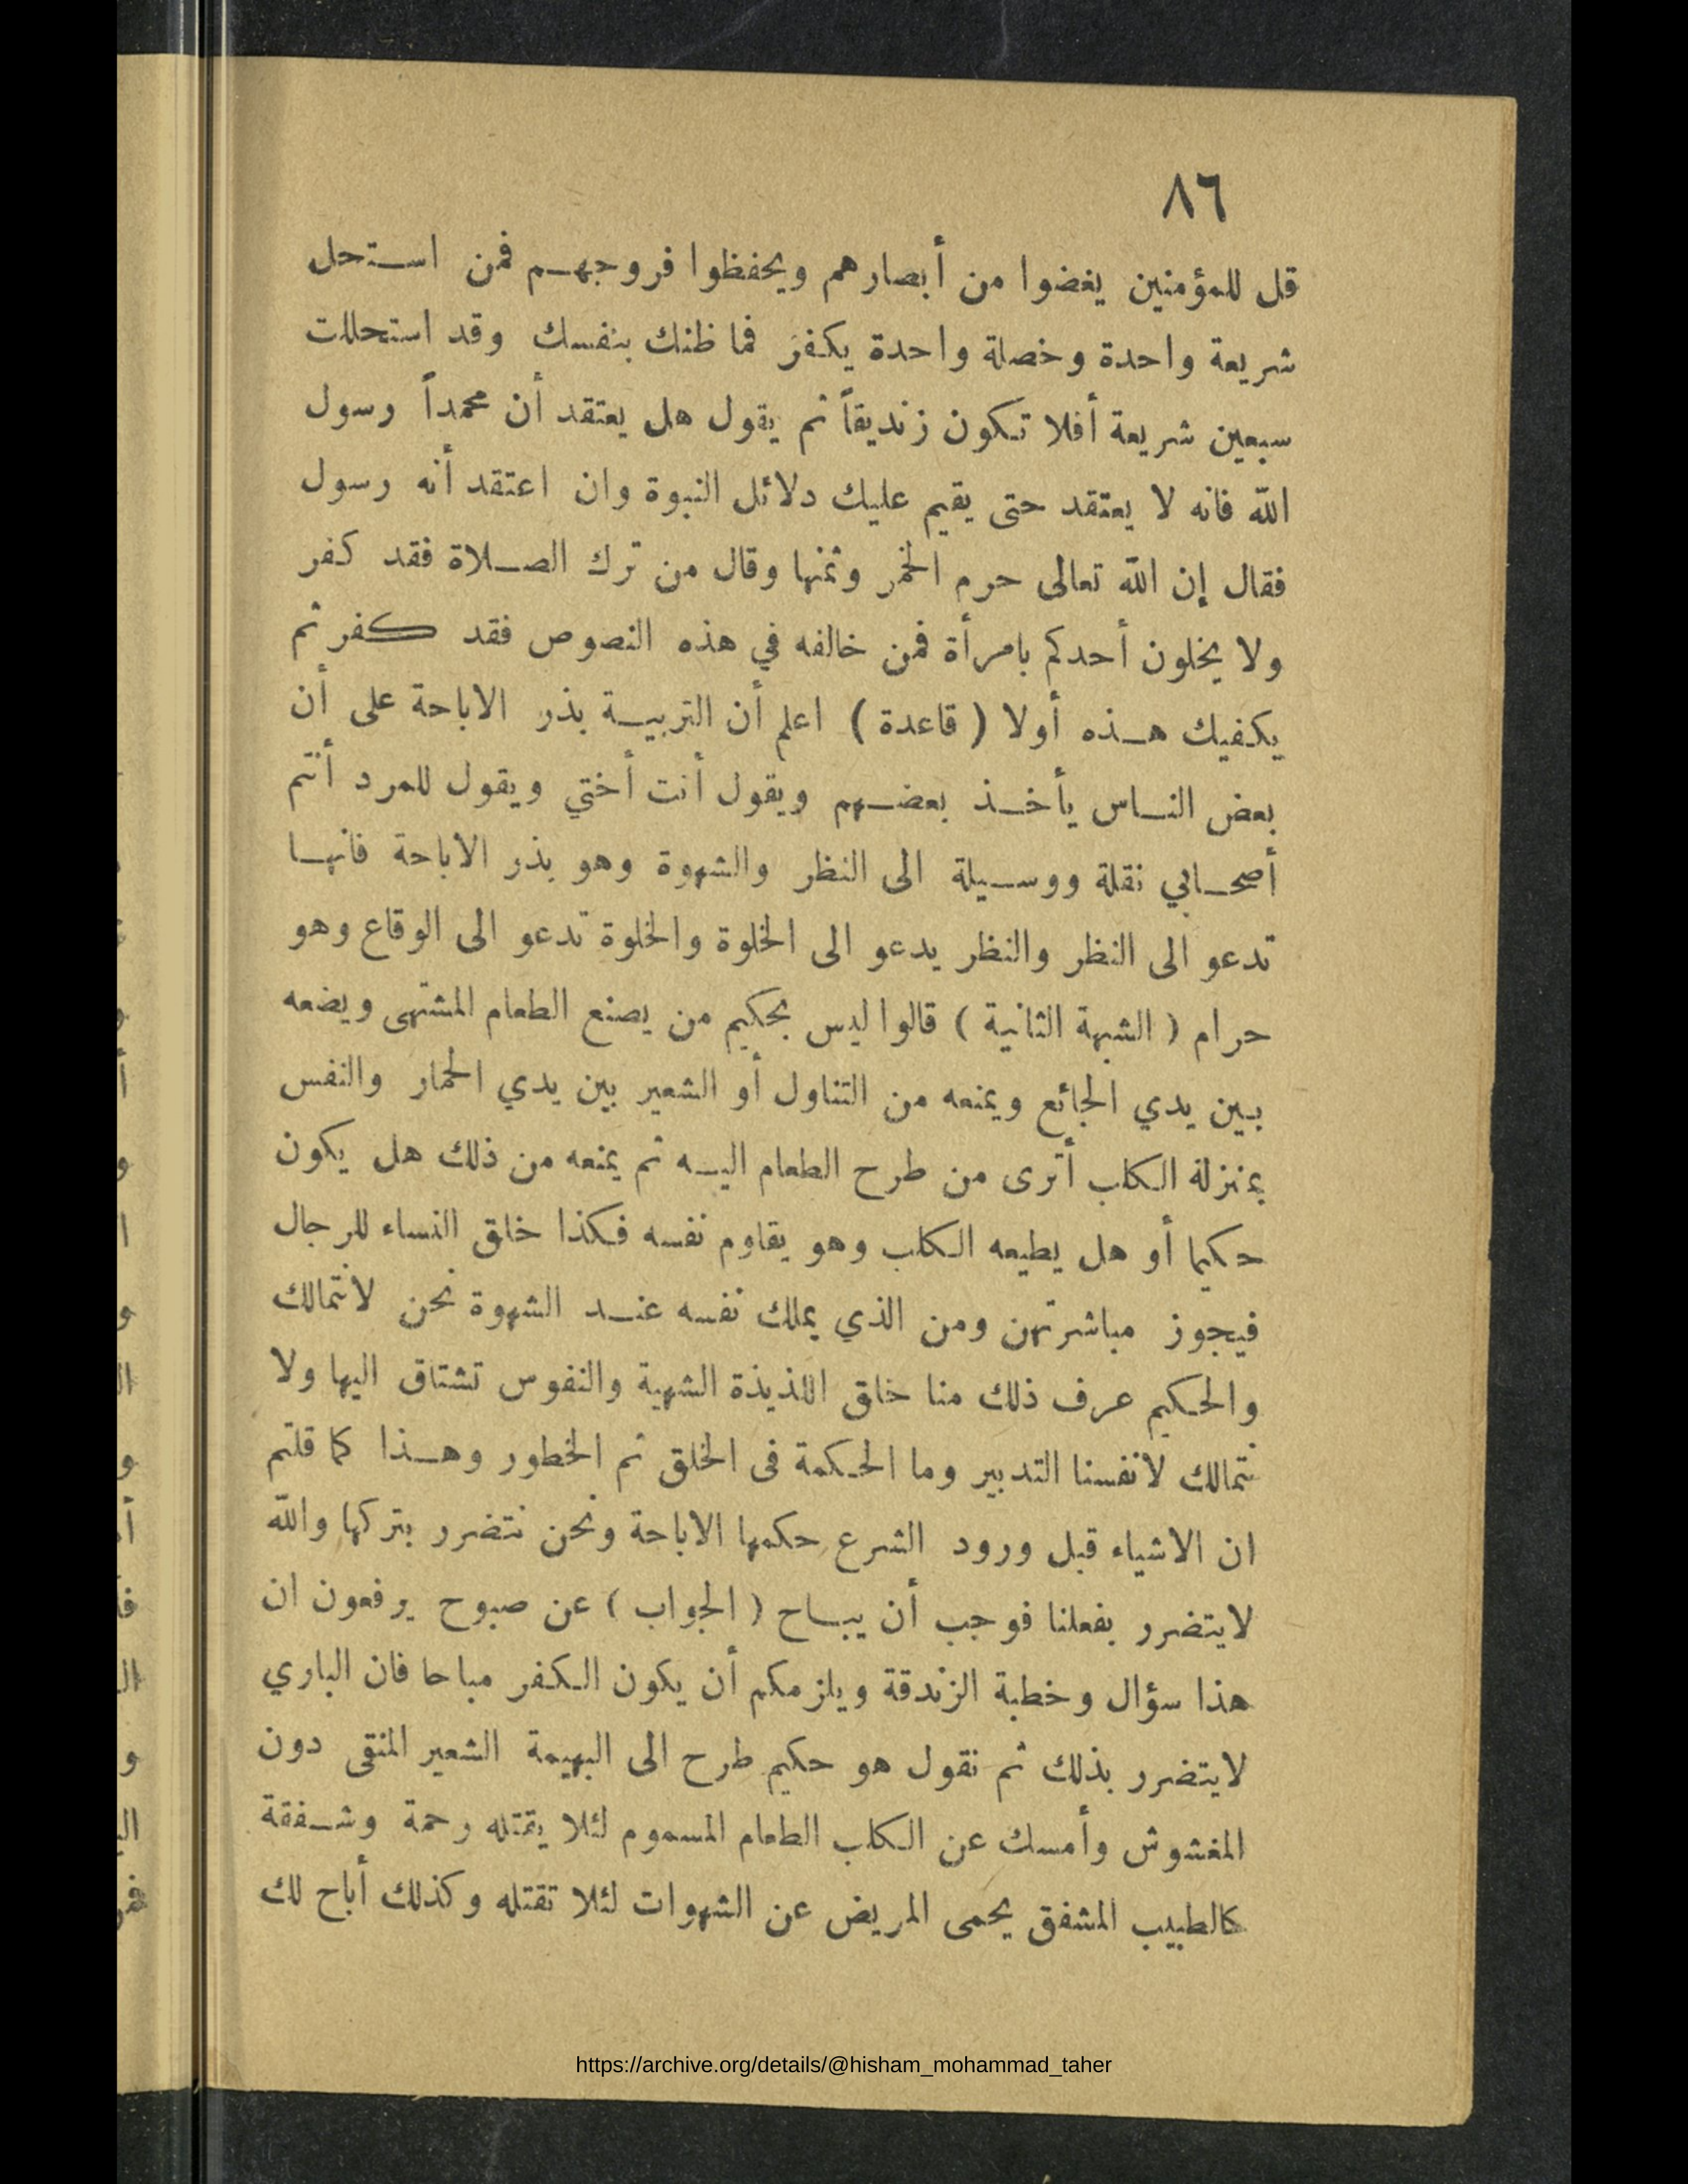 ٨٦
قل للمؤمنين يغضوا من أبصارهم ويحفظوا فروجهم فمن استحل
شريعة واحدة وخصلة واحدة يكفر فما ظنك بنفسك وقد استحللت
سبعين شريعة أفلا تكون زنديقاً ثم يقول هل يعتقد أن محمداً رسول
الله فانه لا يعتقد حتى يقيم عليك دلائل النبوة وان اعتقد أنه رسول
فقال إن الله تعالى حرم الخمر وثمنها وقال من ترك الصلاة فقد كفر
ولا يخلون أحدكم بامرأة فمن خالفه في هذه النصوص فقد كفر ثم
يكفيك هذه أولا ( قاعدة ) اعلم أن التربية بذر الاباحة على أن
بعض الناس يأخذ بعضهم ويقول أنت أختي ويقول للمرد أنتم
أصحابي نقلة ووسيلة الى النظر والشهوة وهو بذر الاباحة فانها
تدعو الى النظر والنظر يدعو الى الخلوة والخلوة تدعو الى الوقاع وهو
حرام ( الشبهة الثانية ) قالوا ليس بحكيم من يصنع الطعام المشتهى ويضعه
بين يدي الجائع ويمنعه من التناول أو الشعير بين يدي الحمار والنفس
بمنزلة الكلب أترى من طرح الطعام اليه ثم يمنعه من ذلك هل يكون
حكيما أو هل يطيعه الكلب وهو يقاوم نفسه فكذا خلق النساء للرجال
فيجوز مباشرتهن ومن الذي يملك نفسه عند الشهوة نحن لانتمالك
والحكيم عرف ذلك منا خلق اللذيذة الشهية والنفوس تشتاق اليها ولا
نتمالك لانفسنا التدبير وما الحكمة فى الخلق ثم الخطور وهذا كما قلتم
ان الاشياء قبل ورود الشرع حكمها الاباحة ونحن نتضرر بتركها والله
لايتضرر بفعلنا فوجب أن يباح ( الجواب ) عن صبوح يرفعون ان
هذا سؤال وخطبة الزندقة ويلزمكم أن يكون الكفر مباحا فان الباري
لايتضرر بذلك ثم نقول هو حكيم طرح الى البهيمة الشعير المنقى دون
المغشوش وأمسك عن الكلب الطعام المسموم لئلا يقتله رحمة وشفقة
كالطبيب المشفق يحمى المريض عن الشهوات لئلا تقتله وكذلك أباح لك
https://archive.org/details/@hisham_mohammad_taher